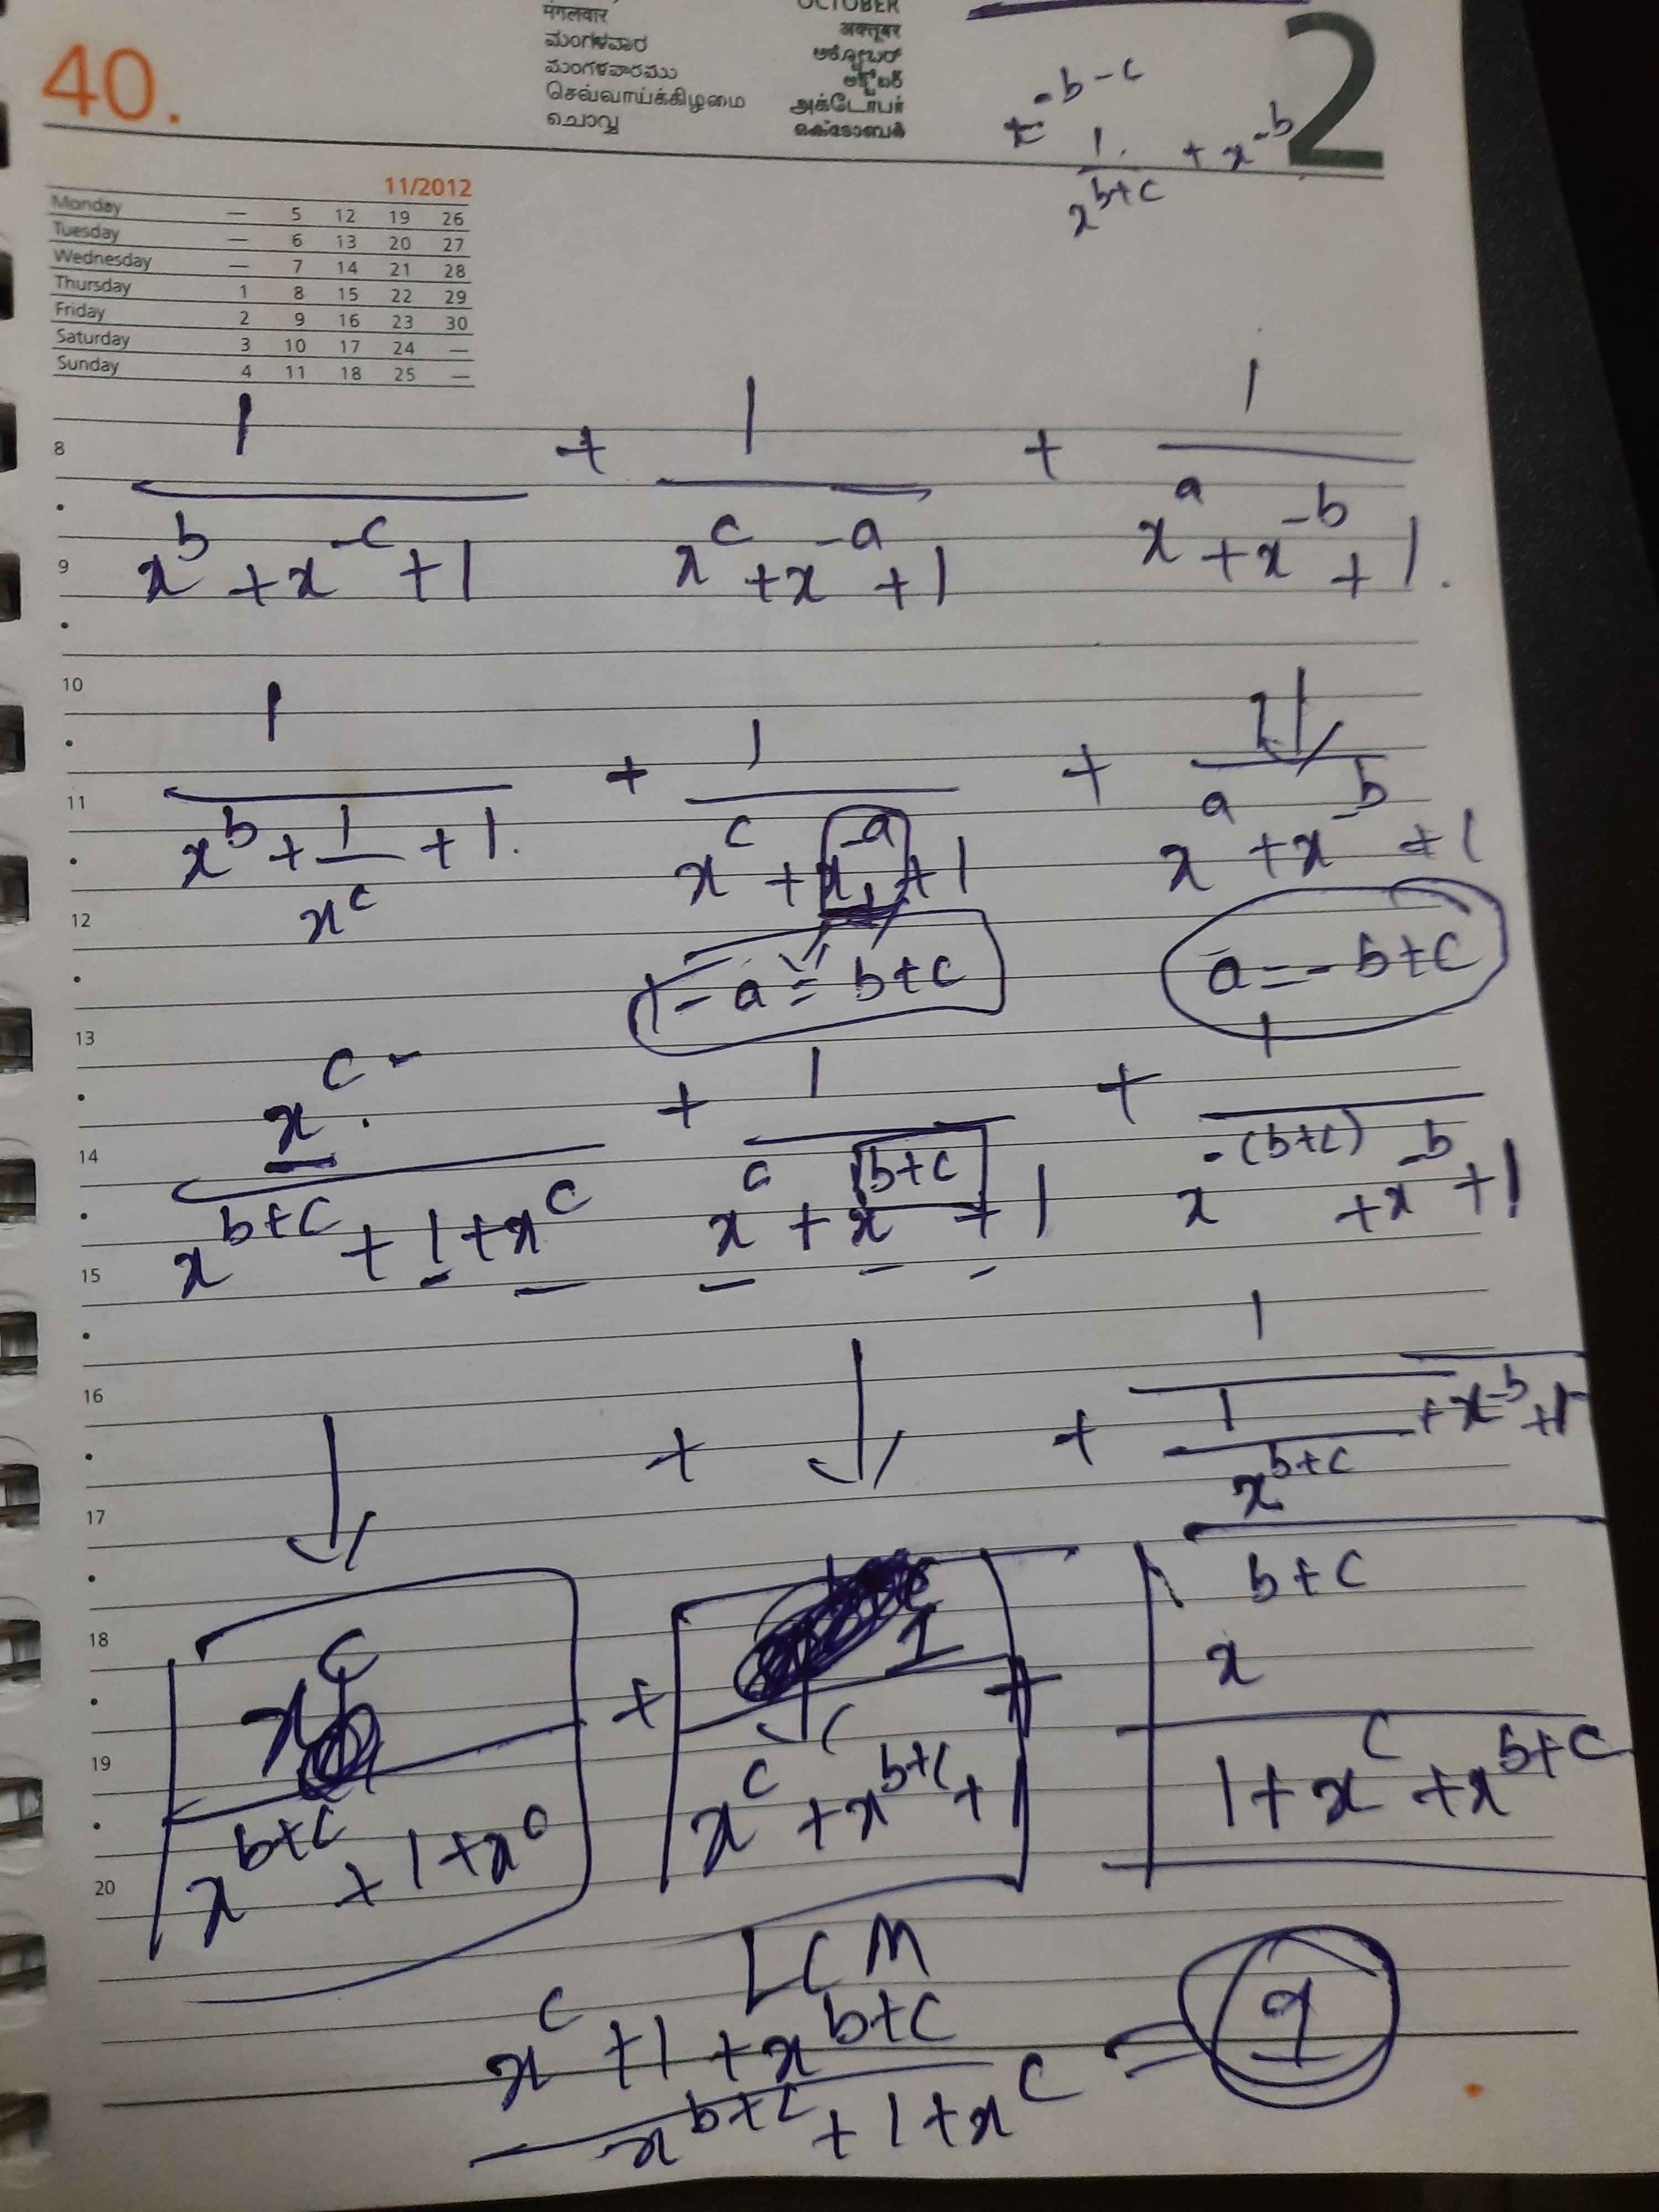 40.
मंगलवार
ಮಂಗಳವಾರ
మంగళవారము
செவ்வாய்க்கிழமை
ചൊവ്വ
OCTOBER
अक्तूबर
ಅಕ್ಟೋಬರ್
అక్టోబర్
அக்டோபர்
ഒക്ടോബർ
2
x^{-b-c}
1/x^{b+c} + x^{-b}
11/2012
Monday — 5 12 19 26
Tuesday — 6 13 20 27
Wednesday — 7 14 21 28
Thursday 1 8 15 22 29
Friday 2 9 16 23 30
Saturday 3 10 17 24 —
Sunday 4 11 18 25 —
8
1/(x^b + x^{-c} + 1) + 1/(x^c + x^{-a} + 1) + 1/(x^a + x^{-b} + 1).
9
10
1/(x^b + 1/x^c + 1.) + 1/(x^c + x^{-a} + 1) + 1/(x^a + x^{-b} + 1)
11
12
-a = b+c
a = -b+c
13
x^c/(x^{b+c} + 1 + x^c) + 1/(x^c + x^{b+c} + 1) + 1/(x^{-(b+c)} + x^{-b} + 1)
14
15
+ + 1/(1/x^{b+c} + x^{-b} + 1)
16
17
18
x^c/(x^{b+c} + 1 + x^c) + 1/(x^c + x^{b+c} + 1) + x^{b+c}/(1 + x^c + x^{b+c})
19
20
LCM
(x^c + 1 + x^{b+c})/(x^{b+c} + 1 + x^c) = 1